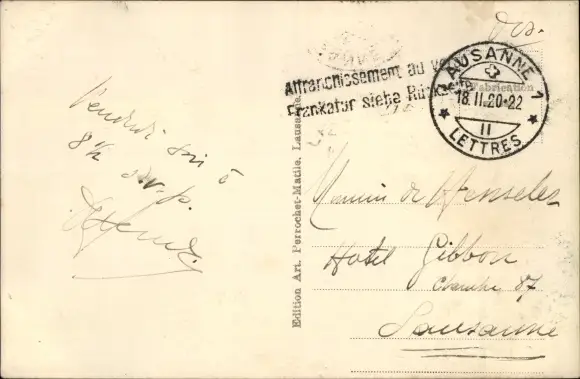 Dos.
Affranchissement au
Frankatur siehe Rücks
LAUSANNE 1
18.II.20-22
II
LETTRES
Fabrication
Vendredi soir à
8 1/2 s.v.p.
Edition Art. Perrochet-Matile, Lausanne.
de
Hotel Gibbon
Chambre 87
Lausanne